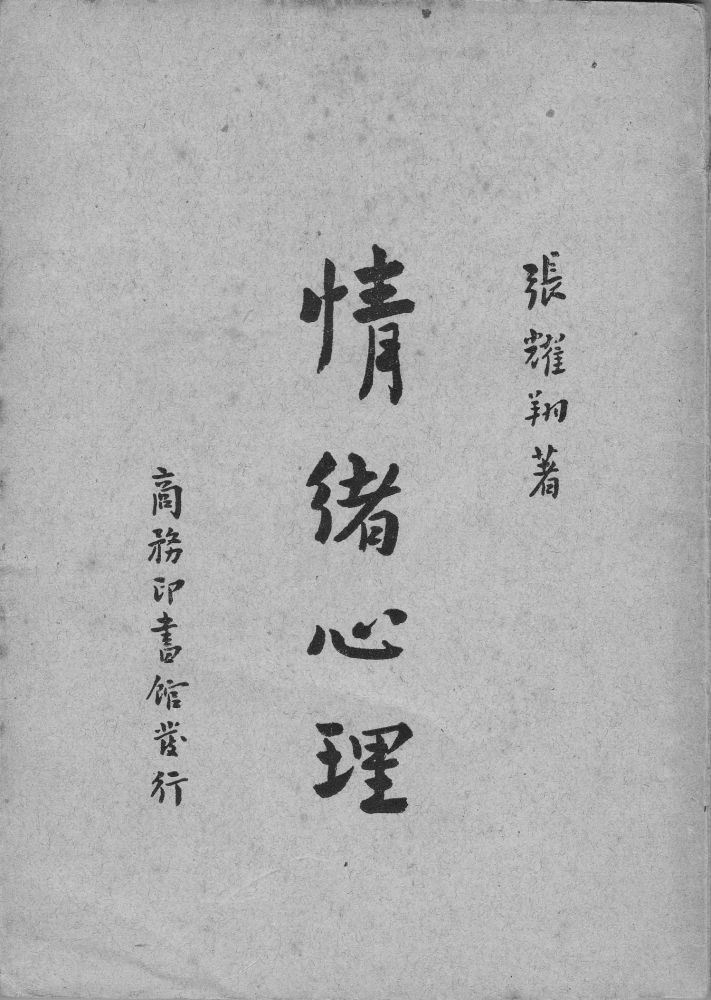 張耀翔著
情緒心理
商務印書館發行